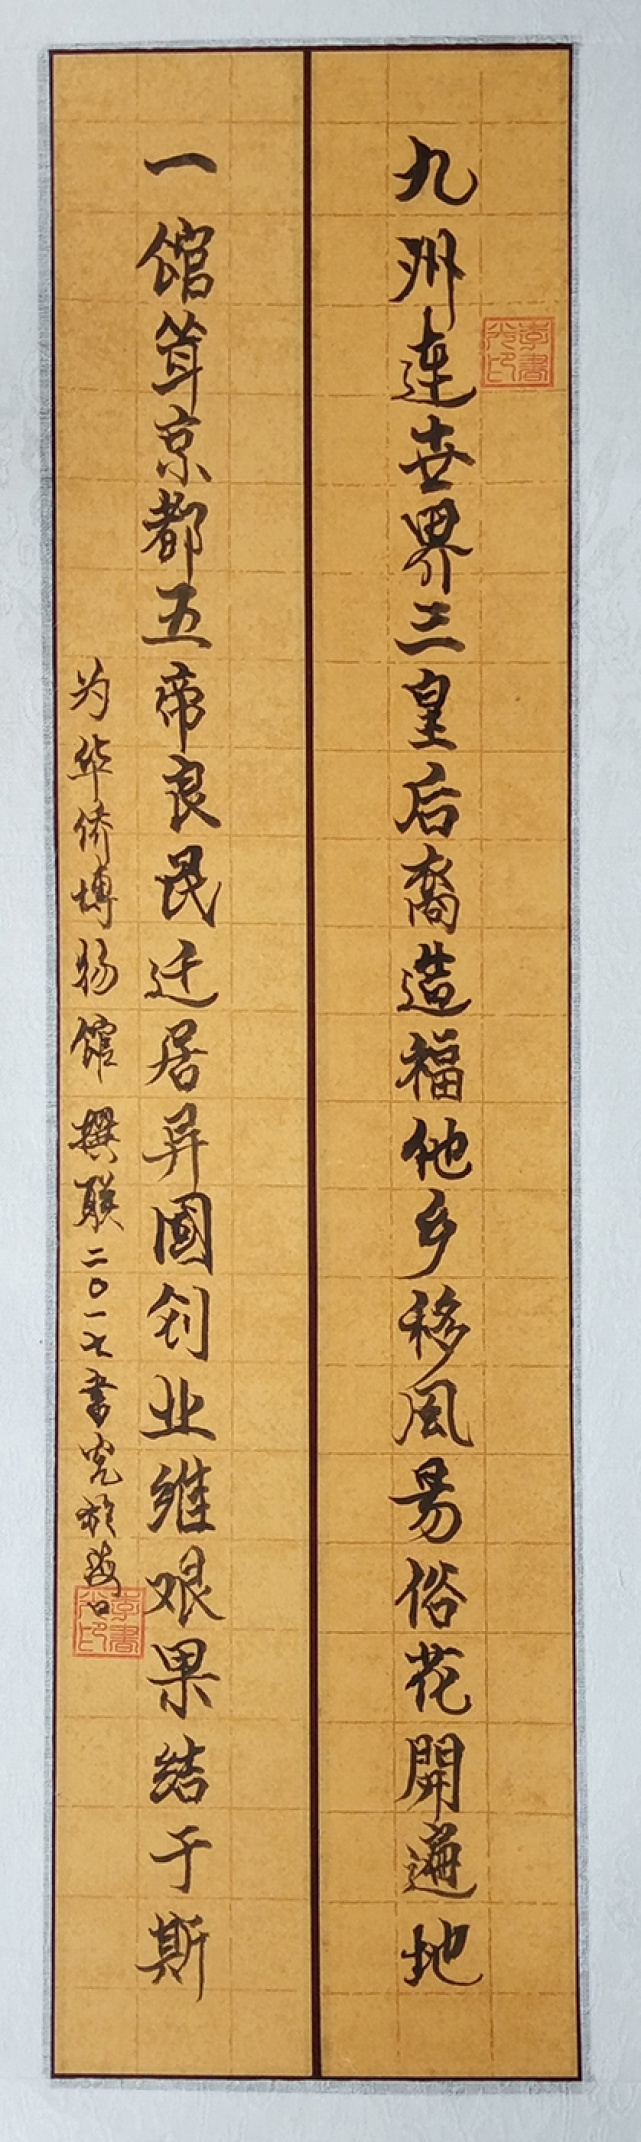 九州连世界三皇后裔造福他乡移风易俗花開遍地
一馆耸京都五帝良民迁居异國创业维艰果结于斯
为华侨博物馆撰联二〇一七书光於海口
李書光印
李書光印